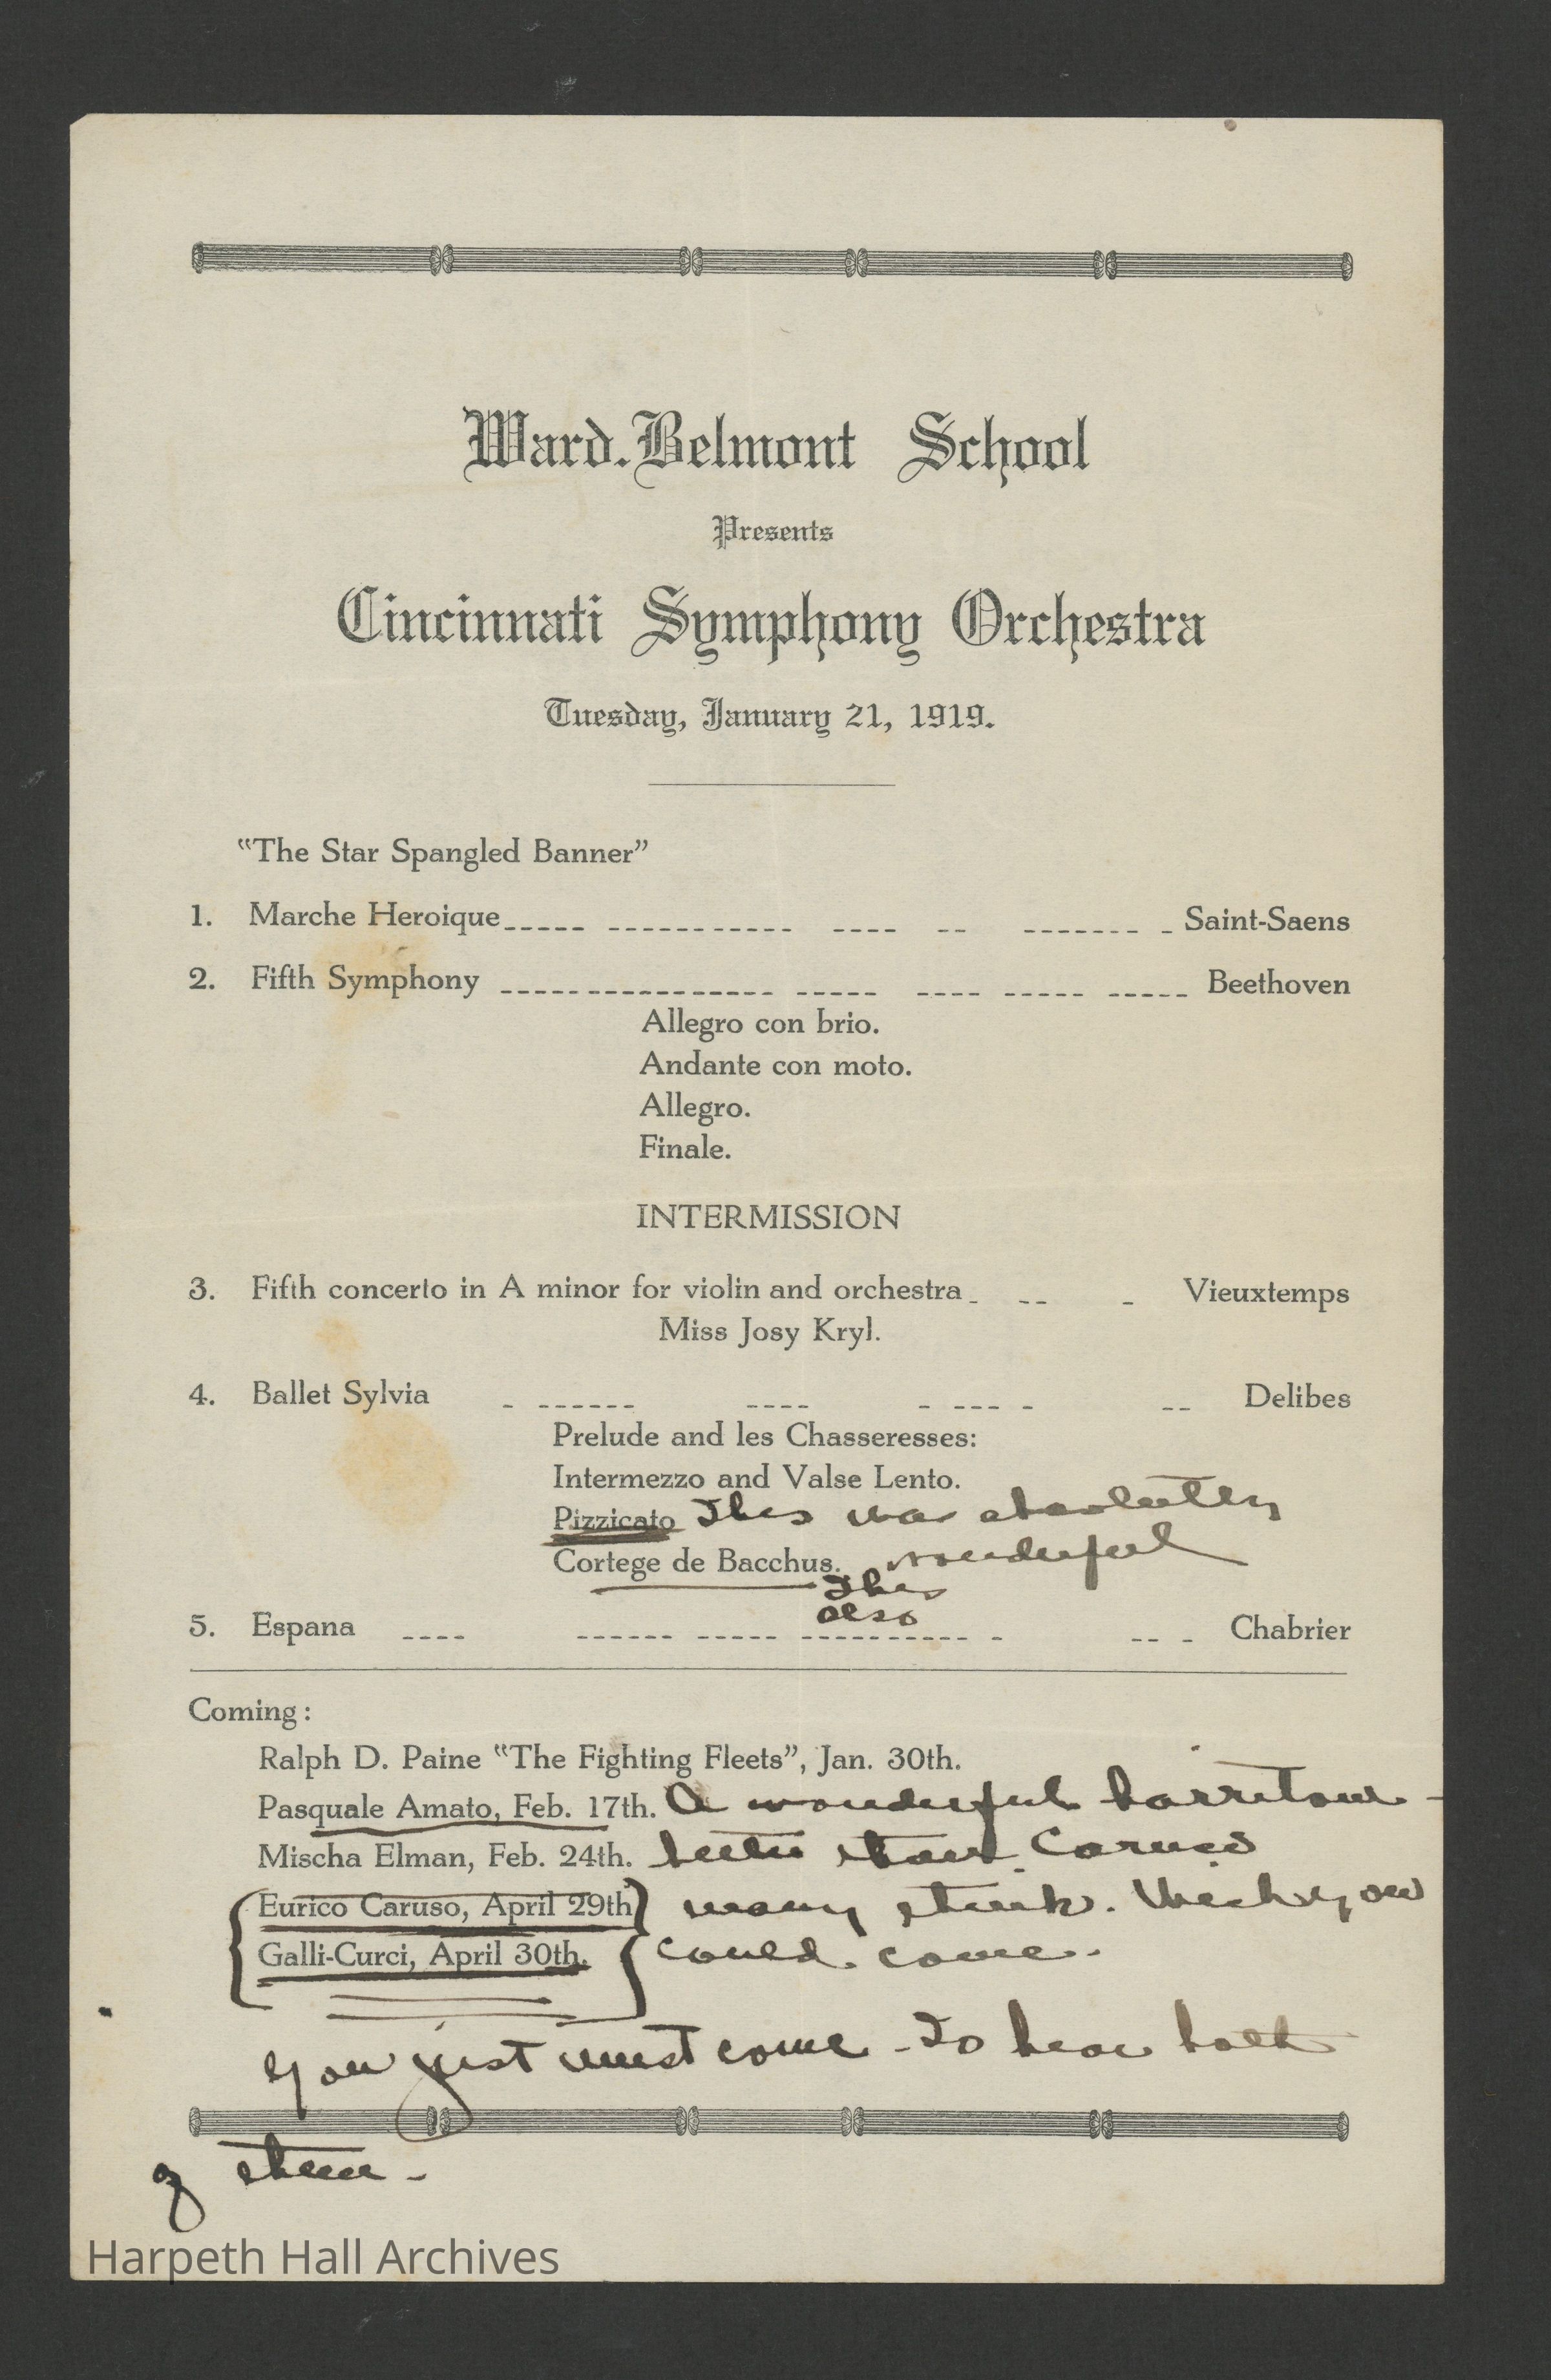 Ward-Belmont School
Presents
Cincinnati Symphony Orchestra
Tuesday, January 21, 1919.
"The Star Spangled Banner"
1. Marche Heroique Saint-Saens
2. Fifth Symphony Beethoven
Allegro con brio.
Andante con moto.
Allegro.
Finale.
INTERMISSION
3. Fifth concerto in A minor for violin and orchestra Vieuxtemps
Miss Josy Kryl.
4. Ballet Sylvia Delibes
Prelude and les Chasseresses:
Intermezzo and Valse Lento.
Pizzicato This was absolutely
Cortege de Bacchus. wonderful
This
also
5. Espana Chabrier
Coming:
Ralph D. Paine "The Fighting Fleets", Jan. 30th.
Pasquale Amato, Feb. 17th. A wonderful barritone -
Mischa Elman, Feb. 24th. better than Caruso
Eurico Caruso, April 29th many think. Wish you
Galli-Curci, April 30th. could come.
You just must come - To hear both
of them -
Harpeth Hall Archives